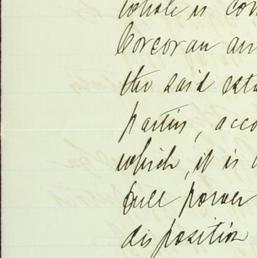 whole is con
Corcoran an
the said esta
parties, acco
which, it is
full power
disposition